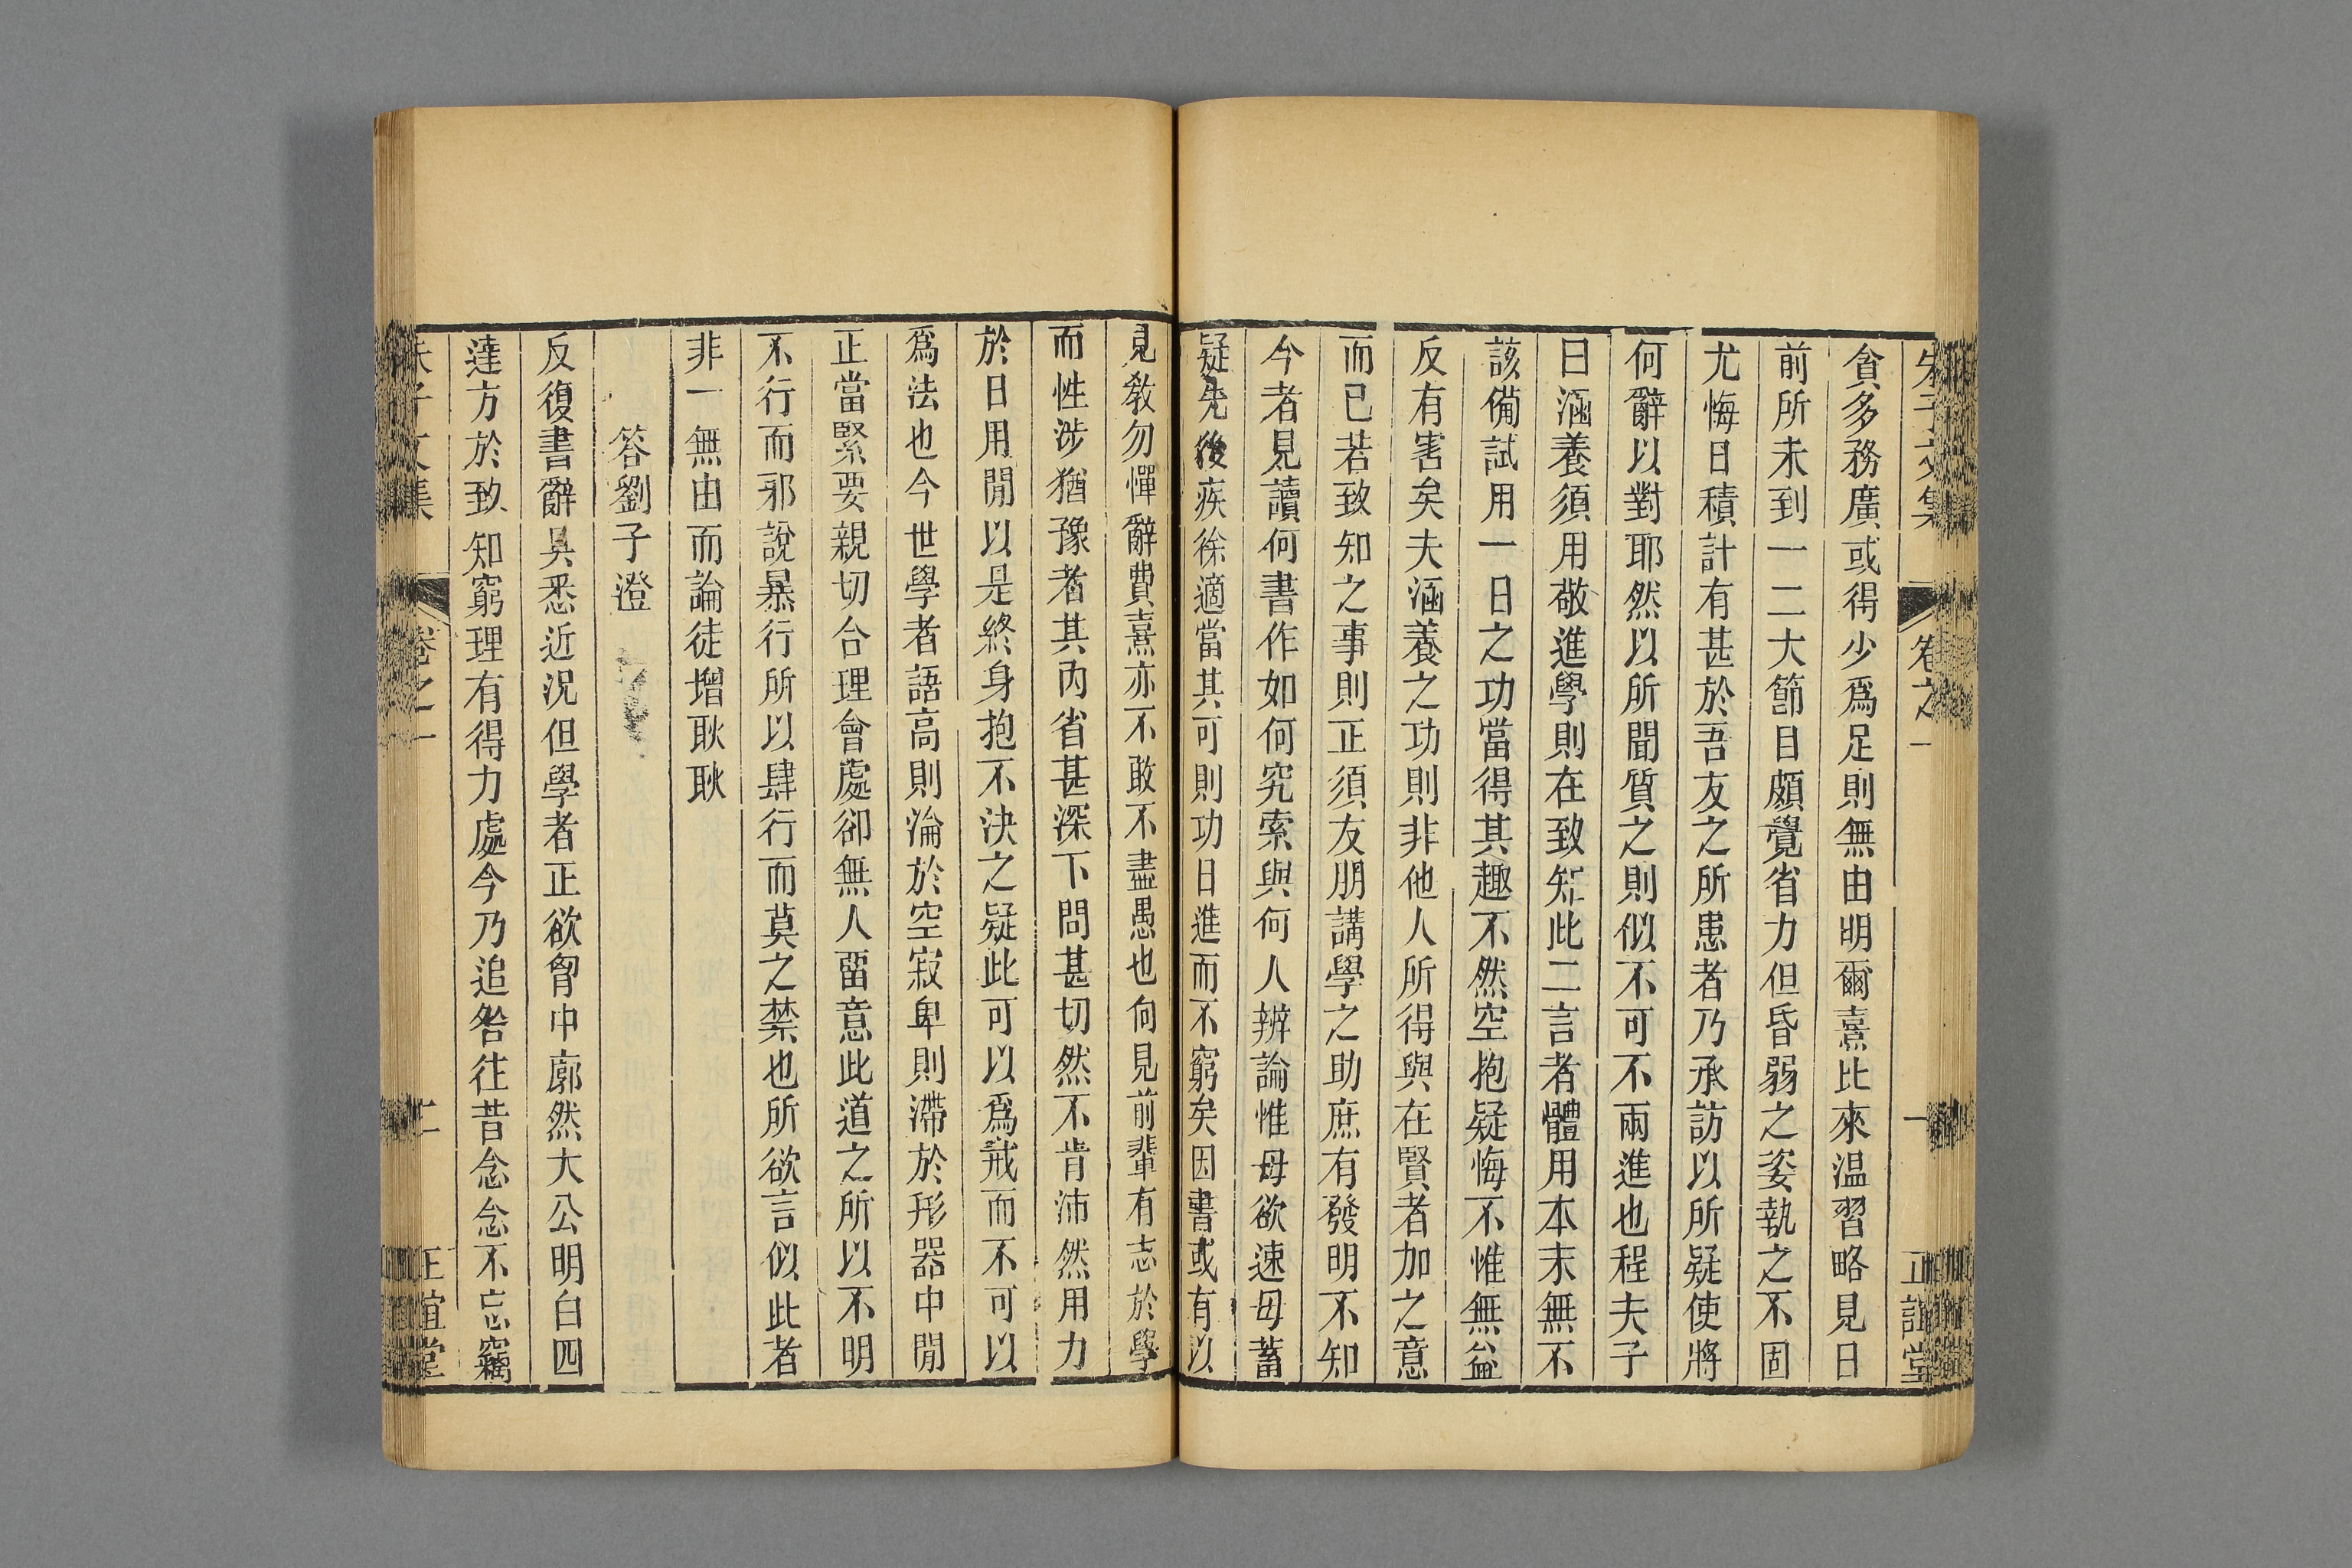 朱子文集 卷之一 一 正誼堂
貪多務廣或得少爲足則無由明爾熹比來温習略見日
前所未到一二大節目頗覺省力但昏弱之姿執之不固
尤悔日積計有甚於吾友之所患者乃承訪以所疑使將
何辭以對耶然以所聞質之則似不可不兩進也程夫子
曰涵養須用敬進學則在致知此二言者體用本末無不
該備試用一日之功當得其趣不然空抱疑悔不惟無益
反有害矣夫涵養之功則非他人所得與在賢者加之意
而已若致知之事則正須友朋講學之助庶有發明不知
今者見讀何書作如何究索與何人辨論惟毋欲速毋蓄
疑先後疾徐適當其可則功日進而不窮矣因書或有以
見敎勿憚辭費熹亦不敢不盡愚也向見前輩有志於學
而性涉猶豫者其內省甚深下問甚切然不肯沛然用力
於日用閒以是終身抱不決之疑此可以爲戒而不可以
爲法也今世學者語高則淪於空寂卑則滯於形器中閒
正當緊要親切合理會處卻無人畱意此道之所以不明
不行而邪說暴行所以肆行而莫之禁也所欲言似此者
非一無由而論徒增耿耿
答劉子澄
反復書辭具悉近況但學者正欲胷中廓然大公明白四
達方於致知窮理有得力處今乃追咎往昔念念不忘竊
朱子文集 卷之一 二 正誼堂